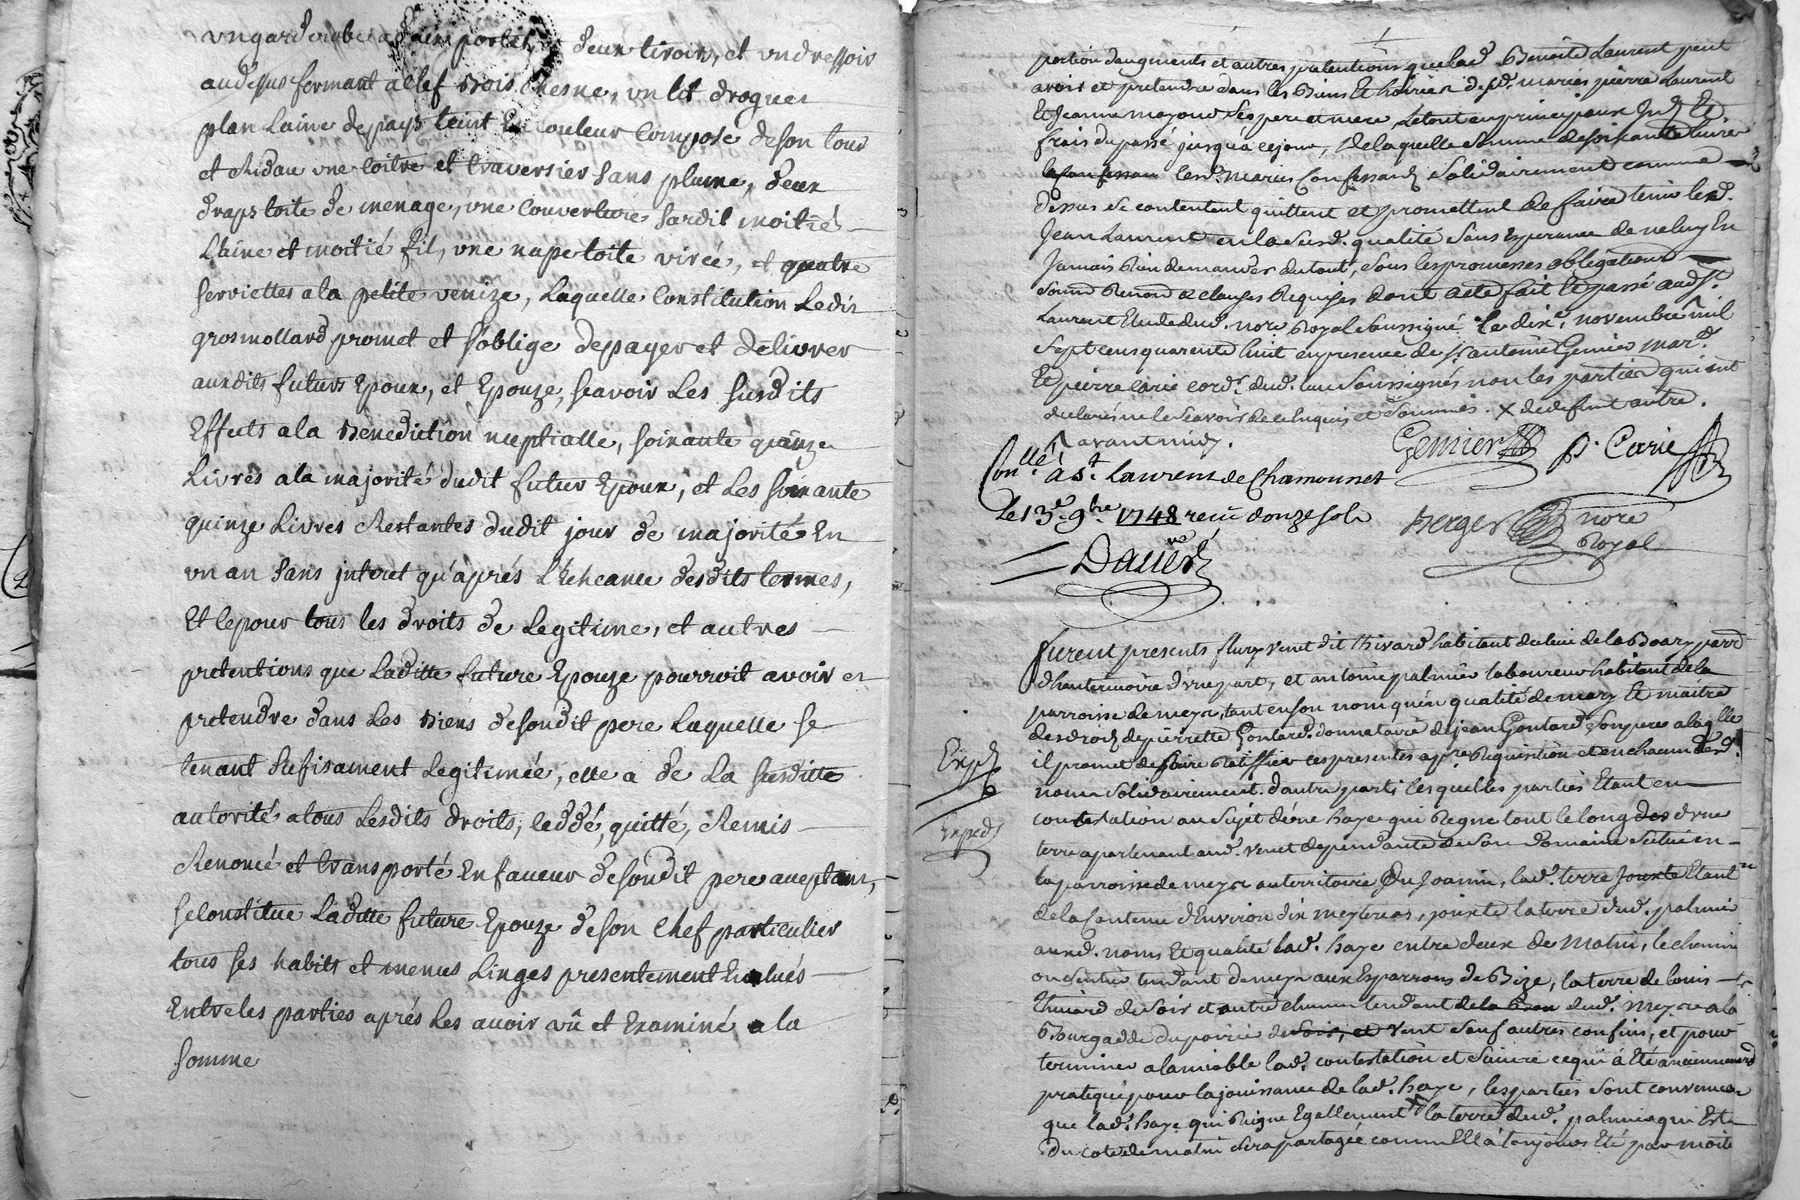 un garderobe a deux portes, deux tiroirs, et un dressoir
au dessus fermant a clef Bois Chesne, un lit droguet
plan Laine de pays teint En couleur Composé de son tour
et Ridau une Coitre et traversier Sans plume, deux
draps toile de menage, une Couverture Sardit moitiés
Laine et moitié fil, une nape toile virée, et quatre
Serviettes a la petite venize, Laquelle Constitution Ledit
grosmollard promet et S'oblige de payer et delivrer
auxdits futurs Epoux, et Epouze, Scavoir Les Susdits
Effects a la Benediction nuptialle, Soixante quinze
Livres a la majorité dudit futur Epoux, et Les Soixante
quinze Livres Restantes dudit jour de majorité En
un an Sans interet qu'aprés L'Echeance desdits termes,
Et le pour tous les droits de Legitime, et autres
pretentions que Laditte future Epouze pourroit avoir et
pretendre dans Les Biens de Sondit pere Laquelle Se
tenant Sufisament Legitimée, elle a de La Susditte
autorité a tous Lesdits droits, ceddé, quitté, Remis
Renoncé et transporté En faveur de Sondit pere aceptant,
Se Constitue Laditte future Epouze de Son Chef particulier
tous Ses habits et menus Linges presentement Evalués
Entre les parties aprés Les avoir vû et Examiné a la
Somme
portion daugments et autres pretentions que lad. Benoite Laurent peut
avoir et pretendre dans les Biens Et hoiries de fd. maries pierre Laurent
Et Jeanne mayoud Ses pere et mere, Le tout en principaux
frais du passé jusqu'à ce jour, de laquelle Somme de Soixante Livres
lesd. maries Confessants Solidairement comme
dessus Se contentent quittent et promettent de faire tenir led.
Jean Laurent en la Susd. qualité Sans Esperance de ne luy En
Jamais Rien demander du tout, Sous les promesses obligations
Soumd Renond & clauses Requises dont acte fait Et passé aud St.
Laurent Etude dud. nore Royal Soussigné Le dixe. novembre mil
Sept cens quarente huit en presence de Sr antoine Gemier mard.
Et pierre Carie cord. dud. lieu Soussignés non les parties qui ont
declaré ne le Scavoir de ce Enquis et Sommés. X de defunt autre.
avant midy.
Gemier P. Carie
Conllé à St. Laurent de Chamousset
Le 13e. 9bre 1748 recu donze sols
Berger nore
Royal
Dauier
Furent presents fleury venet dit Thivard habitant du lieu de la Boary parr.
d'hauterivoire d'une part, et antoine palmier laboureur habitant de la
parroisse de meys, tant en son nom qu'en qualité de mary Et maitre
des droits de pierrette Gontard. donnataire de jean Gontard Son pere a laqlle
il promet de faire Ratiffier ces presentes a pre Requisition et en chacun desd.
Expd
noms Solidairement. dautre part; lesquelles parties Etant en
Expd
contestation au Sujet d'une haye qui Regne tout le long d'une
terre apartenant aud. venet dependante de Son Domaine Situé en
la parroisse de meys au territoire Du Joanin, lad. terre Etant
de la Contenue d'Environ dix meyterées, jouxte la terre dud. palmier
auxd. noms Et qualité lad. haye entre deux de Matin, le chemin
ou Sentier tendant de meys aux Esparrons de Bize, la terre de louis
Thivard de Soir et autre chemin tendant dud. Meys a la
Bourgade du poirié de vent Sauf autres confins, et pour
terminer a lamiable lad. contestation et Suivre ce qui à Eté anciennement
pratiqué pour la jouissance de lad. haye, les parties Sont convenues
que lad. haye qui Regne Egallement la terre dud. palmier qui Est
du coté de matin Sera partagée comme Ell'à toujours Eté par moitié